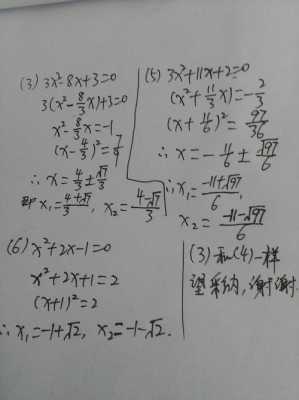 (3) 3x²-8x+3=0
3(x²-8/3x)+3=0
x²-8/3x=-1
(x-4/3)²=7/9
∴ x=4/3±√7/3
即 x₁=4+√7/3, x₂=4-√7/3
(5) 3x²+11x+2=0
(x²+11/3x)=-2/3
(x+11/6)²=97/36
∴ x=-11/6±√97/6
∴ x₁=-11+√97/6,
x₂=-11-√97/6
(6) x²+2x-1=0
x²+2x+1=2
(x+1)²=2
∴ x₁=-1+√2, x₂=-1-√2.
(3)和(4)一样
望采纳,谢谢